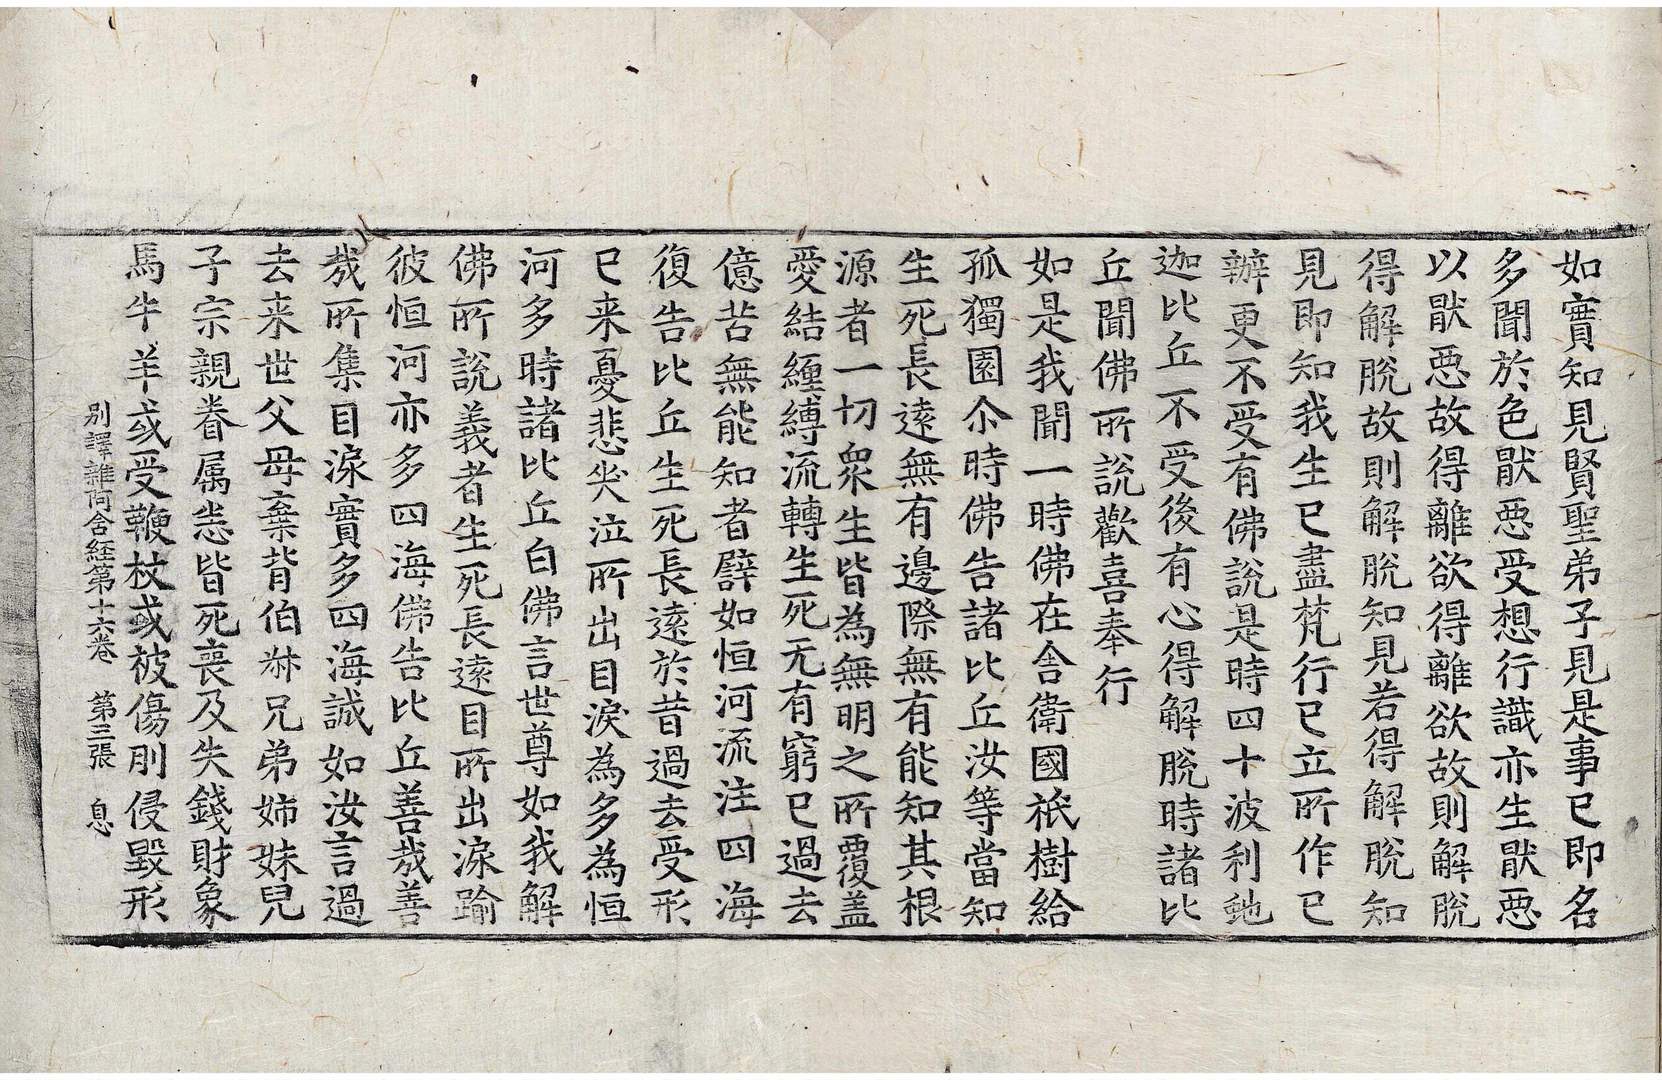 如實知見賢聖弟子見是事已即名
多聞於色猒惡受想行識亦生猒惡
以猒惡故得離欲得離欲故則解脫
得解脫故則解脫知見若得解脫知
見即知我生已盡梵行已立所作已
辦更不受有佛說是時四十波利虵
迦比丘不受後有心得解脫時諸比
丘聞佛所說歡喜奉行
如是我聞一時佛在舍衛國祇樹給
孤獨園尒時佛告諸比丘汝等當知
生死長遠無有邊際無有能知其根
源者一切衆生皆為無明之所覆盖
愛結纏縛流轉生死无有窮已過去
億苦無能知者譬如恒河流注四海
復告比丘生死長遠於昔過去受形
已来憂悲哭泣所出目淚為多為恒
河多時諸比丘白佛言世尊如我解
佛所說義者生死長遠目所出淚踰
彼恒河亦多四海佛告比丘善哉善
哉所集目淚實多四海誠如汝言過
去来世父母棄背伯叔兄弟姉妹兒
子宗親眷属悉皆死喪及失錢財象
馬牛羊或受鞭杖或被傷刖侵毀形
别譯雜阿含経第十六卷 第三張 息